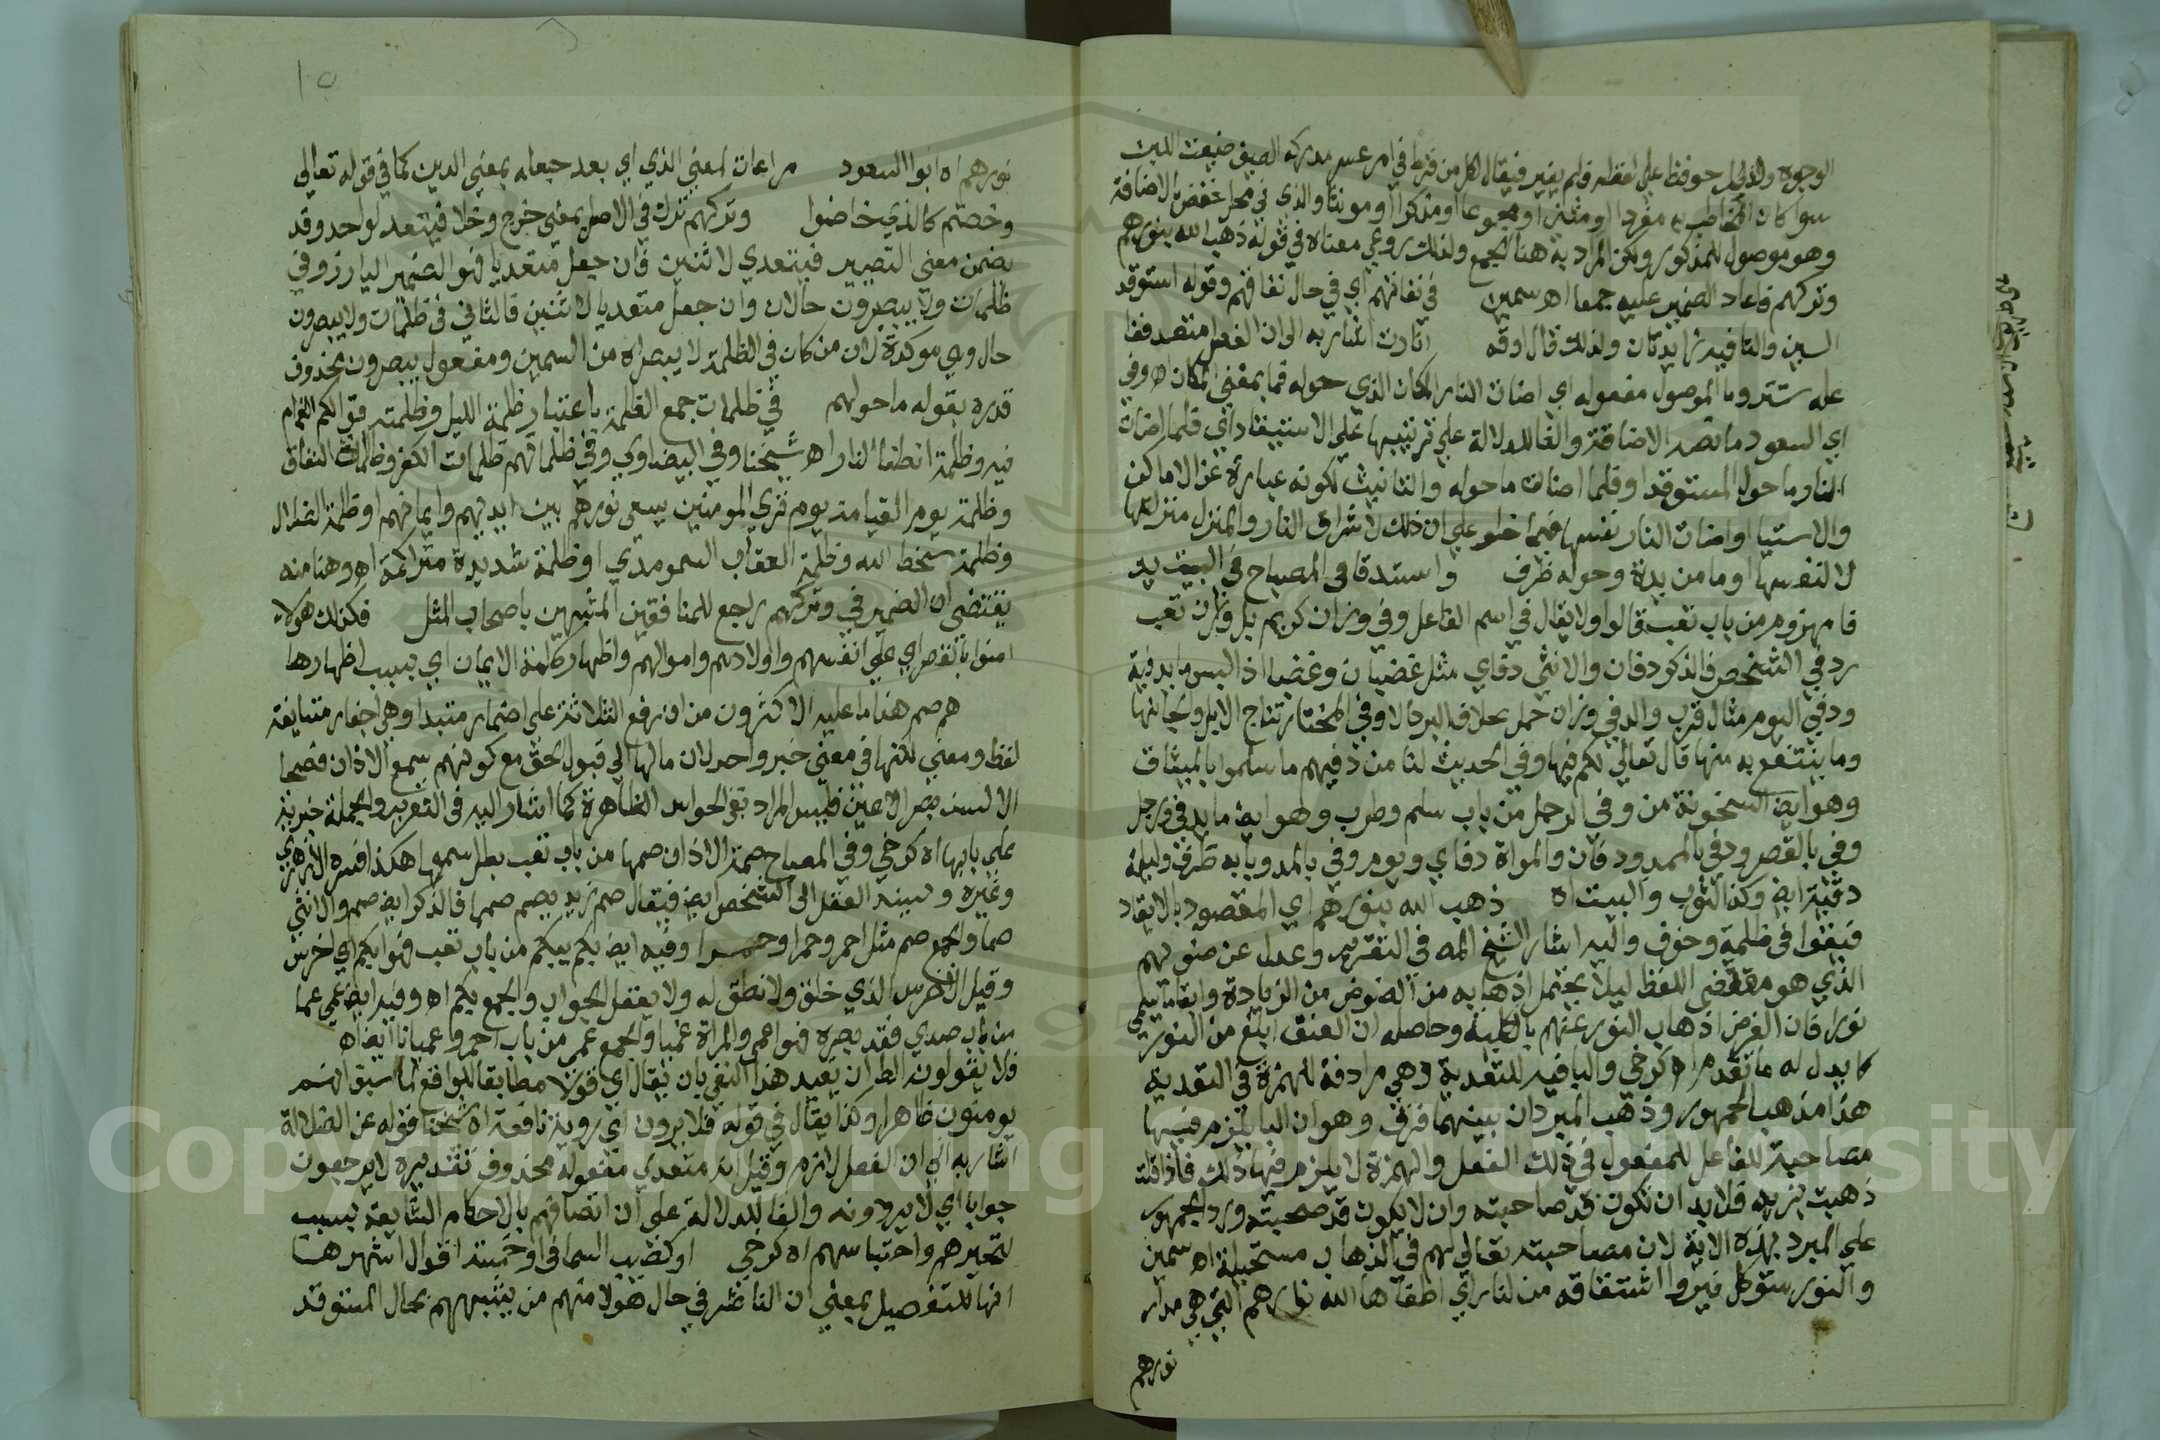 الوجوه والذي حوفظ على لفظه فلم يغير فيقال لكل من فرط في امر عسر مدركه الصيف ضيعت اللبن
سوا كان المخاطب به مفردا او مثنى او مجموعا او مذكرا او مونثا والذي في محل خفض بالاضافة
وهو موصول للمذكور ولكن المراد به هنا الجمع ولذلك روعي معناه في قوله ذهب الله بنورهم
وتركهم فاعاد الضمير عليه جمعا اه سمين في نفاقهم اي في حال نفاقهم وقوله استوقد
السين والتا فيه زايدتان ولذلك قال اوقد انارت اشار به الى ان الفعل متعد ففا
عله مستتر وما الموصول مفعوله اي اضات النار المكان الذي حوله فما بمعنى المكان اه وفي
ابي السعود ما نصه الاضاة والفا للدلالة على ترتيبها على الاستيقاد اي فلما اضات
النار ما حول المستوقد او فلما اضات ما حوله والتانيث لكونه عبارة عن الاماكن
والاشيا او اضات النار نفسها فيما حوله على ان ذلك لاشراق النار والمنزل منزلتها
لا لنفسها او ما مزيدة وحوله ظرف واستدفا في المصباح دفي البيت يد
فا مهموز من باب تعب قالوا ولا يقال في اسم الفاعل دفي وزان كريم بل وزان تعب
ودفي الشخص فالذكر دفان والانثى دفاي مثل غضبان وغضبا اذا لبس ما يدفيه
ودفي اليوم مثال قرب والدفي وزان حمل بخلاف البرد اه وفي المختار نتاج الابل والبانها
وما ينتفع به منها قال تعالى لكم فيها دفي وفي الحديث لنا من دفيهم ما سلموا بالميثاق
وهو ايض السخونة من دفي الرجل من باب سلم وطرب وهو ايض ما يدفي ورجل
دفي بالقصر ودفي بالمد ودفان والمراة دفاي ويوم دفي بالمد وبابه ظرف وليلة
دفية ايض وكذا الثوب والبيت اه ذهب الله بنورهم اي المقصود بالايقاد
فبقوا في ظلمة وخوف واليه اشار الشيخ المص في التقرير وعدل عن ضوئهم
الذي هو مقتضى اللفظ ليلا يحتمل اذهابه من الضو من الزيادة وابقا ما يسمى
نورا فان الغرض اذهاب النور عنهم بالكلية وحاصله ان الضو ابلغ من النور
كما يدل له ما تقدم اه كرخي والبا فيه للتعدية وهي مرادفة للهمزة في التعدية
هذا مذهب الجمهور وذهب المبرد ان بينهما فرق وهو ان البا يلزم فيها
مصاحبة الفاعل للمفعول في ذلك الفعل والهمزة لا يلزم فيها ذلك فاذا قلت
ذهبت بزيد فلا بد ان تكون قد صاحبته وان لا يكون قد صحبته ورد الجمهور
على المبرد بهذه الاية لان مصاحبته تعالى لهم في الذهاب مستحيلة اه سمين
والنور ستوكل نيروا اشتقاقه من النار اي اطفا الله نارهم التي هي مدار
نورهم
نورهم اه ابو السعود مراعات لمعنى الذي اي بعد جعله بمعنى الذين كما في قوله تعالى
وخضتم كالذي خاضوا وتركهم ترك في الاصل بمعنى طرح وخلا فيتعد لواحد وقد
يضمن معنى التصيير فيتعدي لاثنين فان جعل متعديا فهو الضمير البارز وفي
ظلمات ولا يبصرون حالان وان جعل متعديا لاثنين فالثاني في ظلمات ولا يبصرون
حال وهي موكدة لان من كان في الظلمة لا يبصر اه من السمين ومفعول يبصرون محذوف
قدره بقوله ما حولهم في ظلمات جمع الظلمة باعتبار ظلمة الليل وظلمة تراكم الغمام
فيه وظلمة انطفا النار اه شيخنا وفي البيضاوي وفي ظلماتهم ظلمات الكفر وظلمات النفاق
وظلمة يوم القيامة يوم ترى المومنين يسعى نورهم بين ايديهم وايمانهم او ظلمة الضلال
وظلمة سخط الله وظلمة العقاب السرمدي او ظلمة شديدة متراكمة اه وهذا منه
يقتضى ان الضمير في وتركهم راجع للمنافقين المشبهين باصحاب المثل فكذلك هولاء
امنوا بالقصر اي على انفسهم واولادهم واموالهم واظهار كلمة الايمان اي بسبب اظهارها
هم صم هذا ما عليه الاكثرون من ان رفع الثلاثة على اضمار مبتدا وهي اخبار متباينة
لفظا ومعنى لكنها في معنى خبر واحد لان مالها الى قبول الحق مع كونهم سمع الاذان فصحا
الالسن بصر الاعين فليس المراد نفي الحواس الظاهرة كما اشار اليه في التقرير والجملة خبرية
على بابها اه كرخي وفي المصباح صمة الاذان صمما من باب تعب بطل سمعها هكذا فسره الازهري
وغيره ويسند الفعل الى الشخص ايض فيقال صم زيد يصم صمما فالذكر ايض صم والانثى
صما والجمع صم مثل احمر وحمرا وحمر وفيه ايض بكم يبكم من باب تعب فهو ابكم اي اخرس
وقيل الاخرس الذي خلق ولا نطق له ولا يعقل الجواب والجمع بكم اه وفيه ايض عمي عما
من باب صدي فقد بصره فهو اعمى والمراة عميا والجمع عمي من باب احمر وعميانا ايض اه
فلا يقولونه الظ ان يقيد هذا النفي بان يقال اي قولا مطابقا للواقع لما سبق انهم
يومنون ظاهرا وكذا يقال في قوله فلا يرون اي روية نافعة اه شيخنا قوله عن الضلالة
اشار به الى ان الفعل لازم وقيل انه متعدي مفعوله محذوف تقديره لا يرجعون
جوابا اي لا يردونه والفا للدلالة على ان اتصافهم بالاحكام السابقة بسبب
لتحيرهم واحتباسهم اه كرخي او كصيب السما في او خمسة اقوال اشهرها
انها للتفصيل بمعنى ان الناظر في حال هولا منهم من يشبههم بحال المستوقد